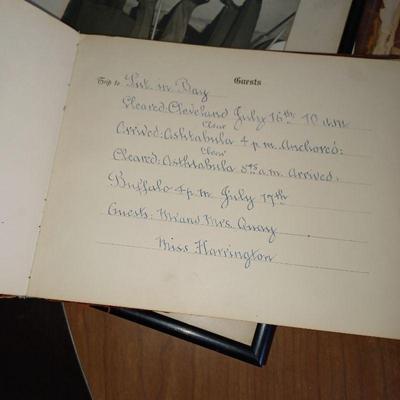 Guests
Trip to Put in Bay
Cleared: Cleveland July 16th 10 a.m.
Clear
Arrived: Ashtabula 4 p.m. Anchored:
Clear
Cleared: Asthtabula 8 a.m. Arrived:
Buffalo 4 p.m. July 17th
Guests: Mr and Mrs. Quay
Miss Harrington